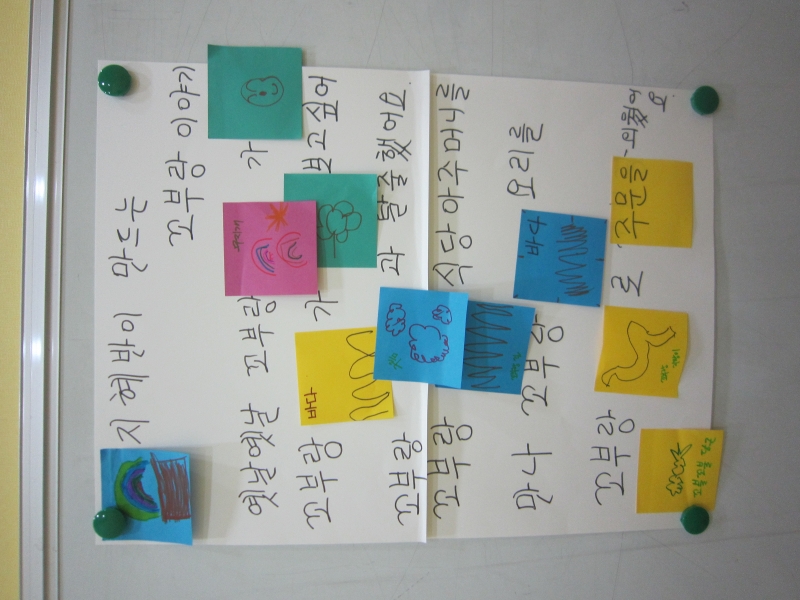 지혜반이 만드는
꼬부랑 이야기
옛날옛날 꼬부랑 가
꼬부랑 가 보고싶어
꼬부랑 과 탈출했어요
꼬부랑 식당아주머니를
만나 꼬부랑 요리를
꼬부랑 로 주문을 외웠어
요